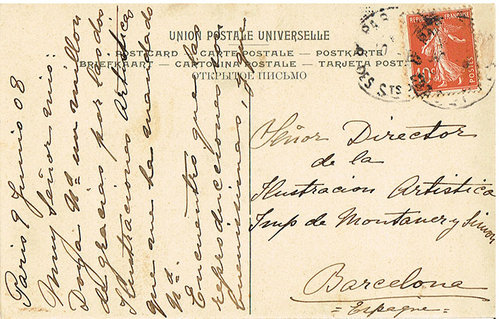 UNION POSTALE UNIVERSELLE
POSTCARD — CARTE POSTALE — POSTKARTE
BRIEFKAART — CARTOLINA POSTALE — TARJETA POSTAL
ОТКРЫТОЕ ПИСЬМО
Paris 9 Junio 08
Muy Señor mio:
Doy a Vd. un millon
de gracias por las dos
Ilustraciones Artisticas
que me ha mandado
Vd.
Encuentro que las
reproducciones son
buenisimas, y que
Señor Director
de la
Ilustracion Artistica
Imp de Montaner y Simon
Barcelona
= Espagne =
POSTES